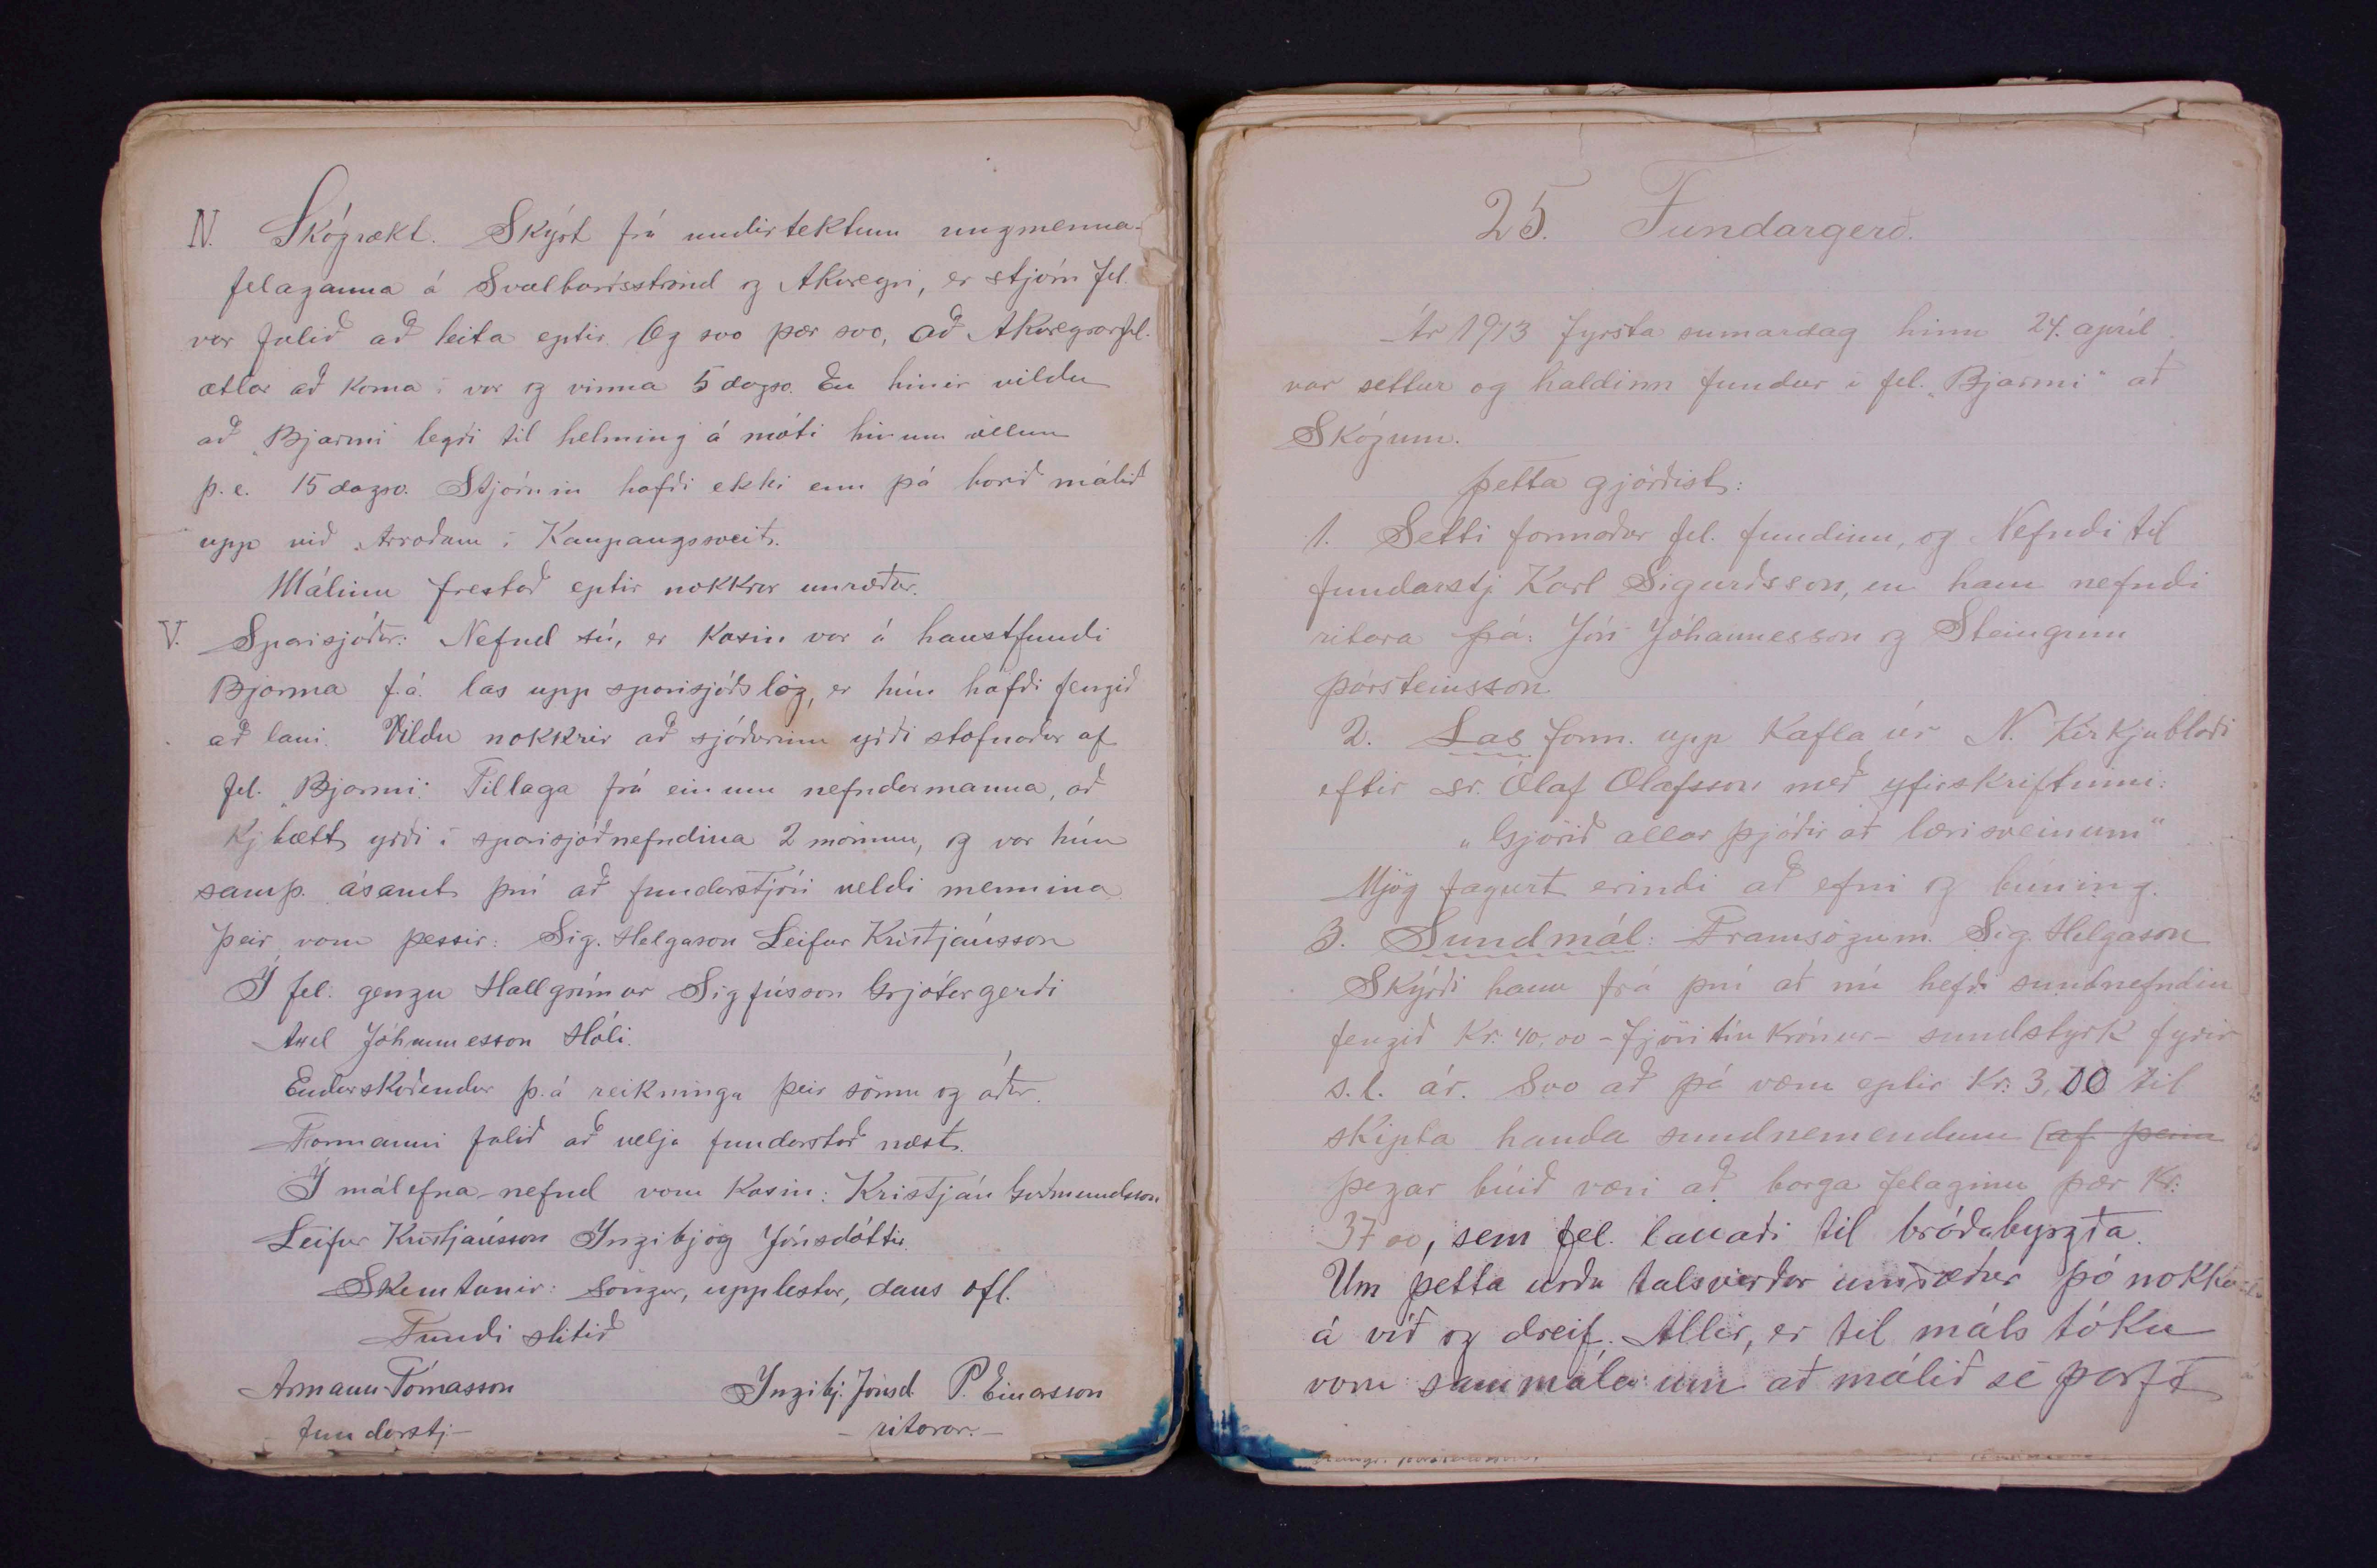 IV. Skógrækt. Skýrt frá undirtektum ungmenna-
felaganna á Svalbarðsstrond og Akureyri, er stjórn fel.
var falið að leita eptir. Og svo þær svo, að Akureyrarfel.
ætlar að koma í vor og vinna 5 dagsv. En hinir vildu
að „Bjarmi legði til helming á móti hinum öllum
þ.e. 15 dagsv. Stjórnin hafði ekki enn þá borið málið
upp við Arroðann í Kaupangssveit.
Málinu frestað eptir nokkrar umræður.
V. Sparisjóður: Nefnd sú, er kosin var á haustfundi
Bjarma f.á. las upp sparisjóðslög, er hún hafði fengið
að lani. Vildu nokkrir að sjóðurinn yrði stofnaður af
fel. „Bjarmi". Tillaga frá einum nefndarmanna, að
bætt yrði í sparisjóðnefndina 2 mönnum, og var hún
samþ. ásamt því að fundarstjóri veldi mennina
þeir voru þessir: Sig. Helgason Leifur Kristjánsson
Í fel. gengu Hallgrímur Sigfússon Grjótargerði
Axel Jóhannesson Hóli.
Endurskoðendur þ.á reikninga þeir sömu og áður.
Formanni falið að velja fundarstað næst.
Í málefna-nefnd voru kosin: Kristján Guðmundsson
Leifur Kristjánsson Ingibjög Jónsdóttir.
Skemtanir: Söngur, upplestur, dans ofl.
Fundi slitið
Armann Tómasson Ingibj. Jónsd. P. Einarsson
fundarstj- - ritarar.-
25. Fundargerð.
Ár 1913 fyrsta sumardag hinn 24. apríl
var settur og haldinn fundur í fel. „Bjarmi" að
Skógum.
Þetta gjörðist:
1. Setti formaður fel. fundinn, og Nefndi til
fundarstj Karl Sigurðsson, en hann nefndi
ritara þá: Jón Jóhannesson og Steingrím
Þorsteinsson
2. Las form. upp kafla úr N. Kirkjublaði
eftir sr. Ólaf Olafsson með yfirskriftinni:
„Gjörið allar þjóðir að lærisveinum"
Mjög fagurt erindi að efni og búning.
3. Sundmál: Framsögum. Sig. Helgason
Skýrði hann frá því að nú hefði sundnefndin
fengið Kr. 40,00 - fjöritíu krónur - sundstyrk fyrir
s.l. ár. Svo að þá væru eptir Kr. 3,00 til
skipta handa sundnemendum (af þeim
þegar búið væri að borga felaginu þær Kr.
37 00, sem fel. lanaði til bráðabyrgða.
Um þetta urðu talsverðar umræður þó nokkuð
á víð og dreif. Allir, er til máls tóku
voru sammála um að málið sé þarft